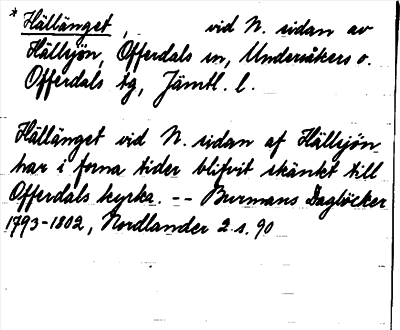 * Hällänget, vid N. sidan av
Hällsjön, Offerdals sn, Undersåkers o.
Offerdals tg, Jämtl. l.
Hällänget vid N. sidan af Hällsjön
har i forna tider blifvit skänkt till
Offerdals kyrka. -- Burmans Dagböcker
1793-1802, Nordlander 2 s. 90